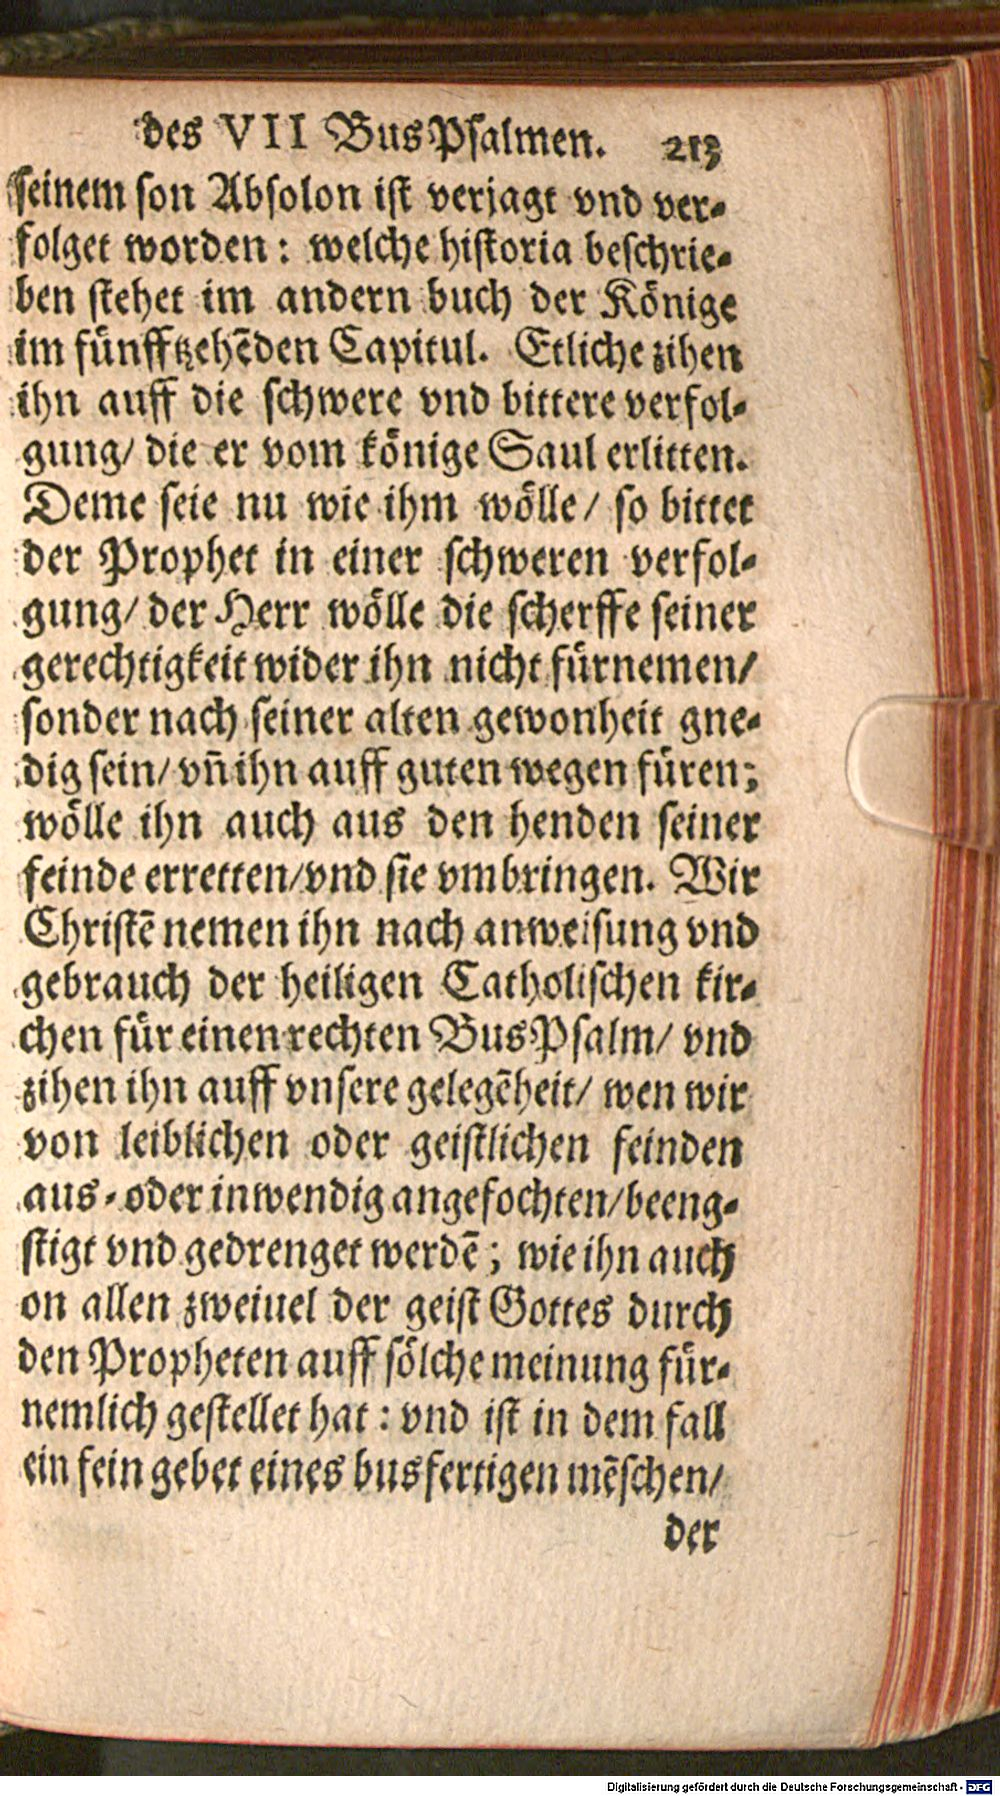 des VII BusPsalmen. 213
seinem son Absolon ist verjagt vnd ver-
folget worden: welche historia beschrie-
ben stehet im andern buch der Könige
im fünfftzehēden Capitul. Etliche zihen
ihn auff die schwere vnd bittere verfol-
gung/ die er vom könige Saul erlitten.
Deme seie nu wie ihm wölle/ so bittet
der Prophet in einer schweren verfol-
gung/ der Herr wölle die scherffe seiner
gerechtigkeit wider ihn nicht fürnemen/
sonder nach seiner alten gewonheit gne-
dig sein/ vn̄ ihn auff guten wegen füren;
wölle ihn auch aus den henden seiner
feinde erretten/ vnd sie vmbringen. Wir
Christē nemen ihn nach anweisung vnd
gebrauch der heiligen Catholischen kir-
chen für einen rechten BusPsalm/ vnd
zihen ihn auff vnsere gelegēheit/ wen wir
von leiblichen oder geistlichen feinden
aus- oder inwendig angefochten/ beeng-
stigt vnd gedrenget werdē; wie ihn auch
on allen zweiuel der geist Gottes durch
den Propheten auff sölche meinung für-
nemlich gestellet hat: vnd ist in dem fall
ein fein gebet eines busfertigen mēschen/
der
Digitalisierung gefördert durch die Deutsche Forschungsgemeinschaft - DFG